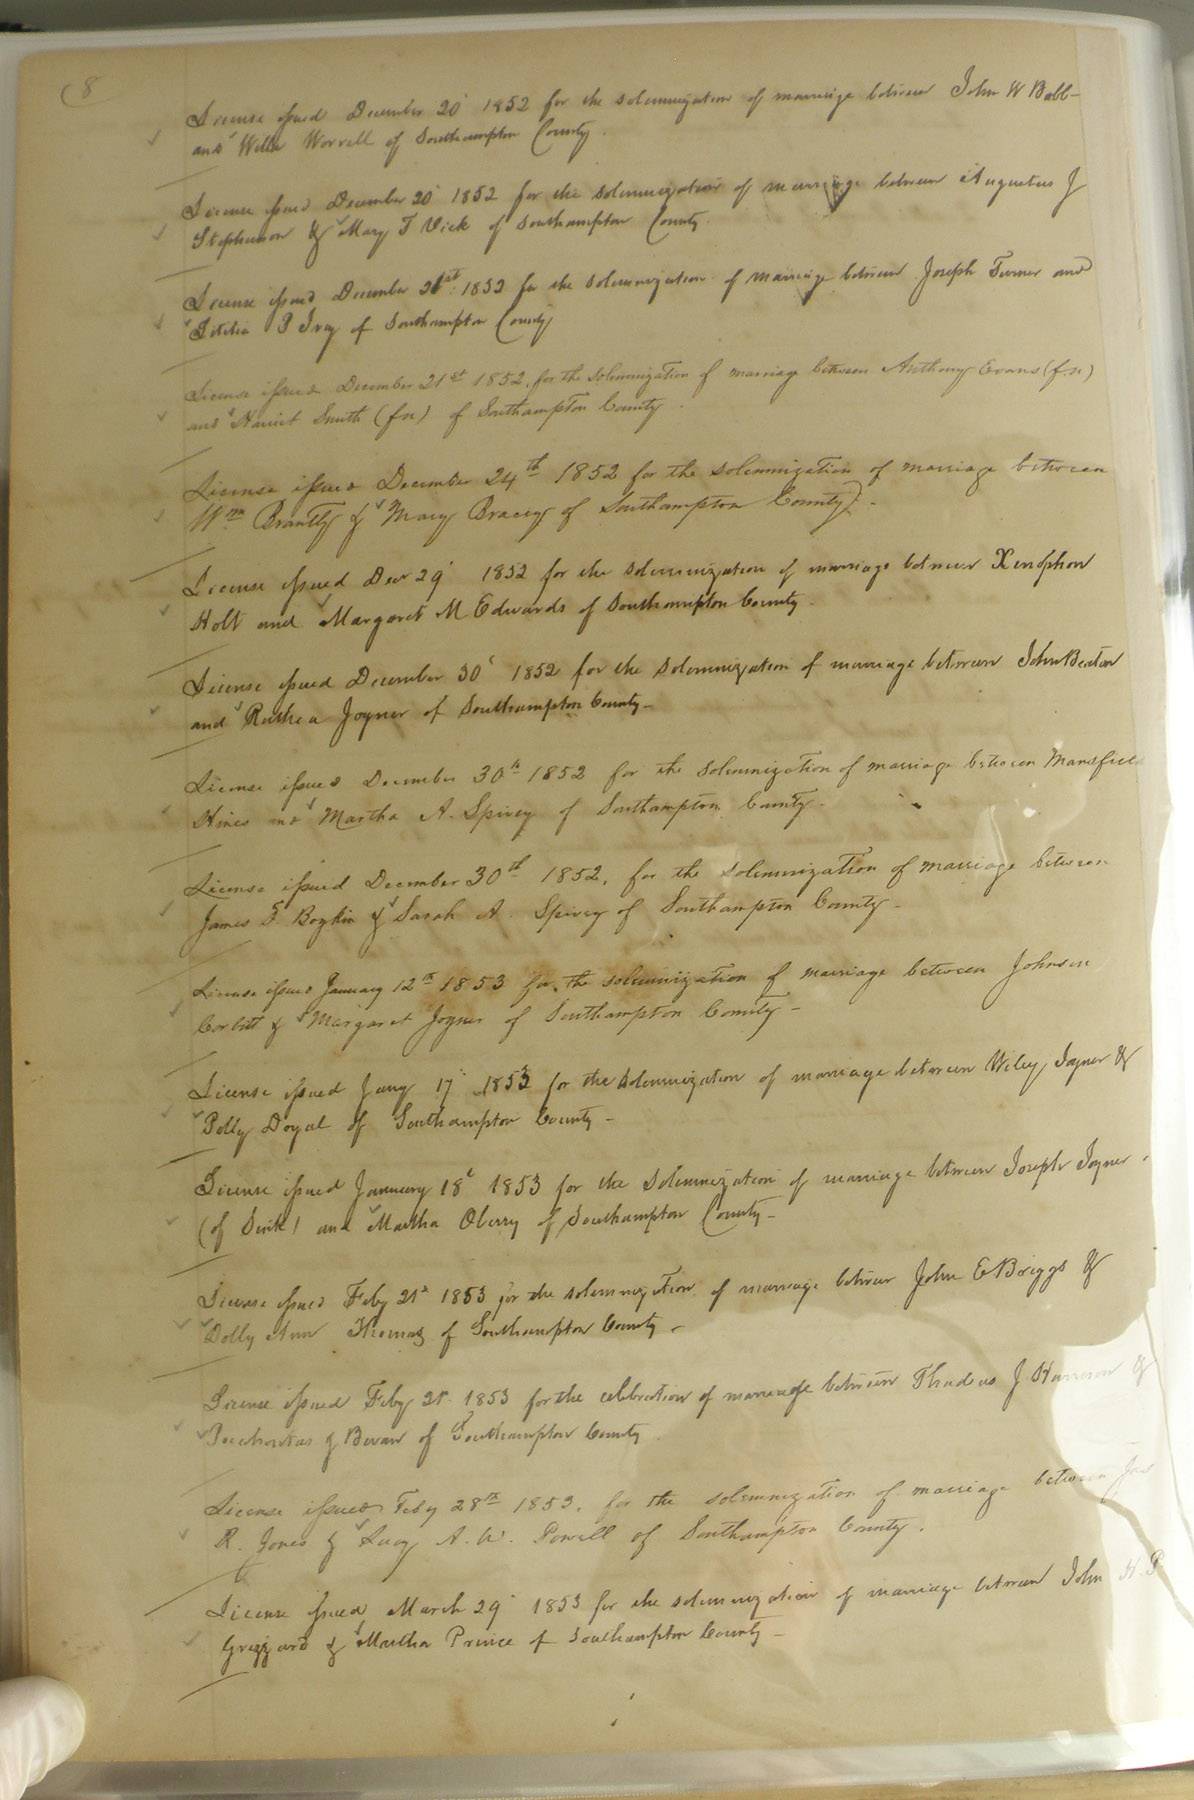 8
License issued December 20 1852 for the solemnization of marriage between John W Babb
and Willa Worrell of Southampton County.
License issued December 20 1852 for the solemnization of marriage between Augustus J
Stephenson & Mary T Vick of Southampton County
License issued December 21st 1852 for the solemnization of marriage between Joseph Turner and
Litelia P Ivey of Southampton County
License issued December 21st 1852, for the solemnization of marriage between Anthony Evans (f.n)
and Harriet Smith (fn) of Southampton County.
License issued December 24th 1852 for the solemnization of marriage between
Wm Brantly & Mary Bracey of Southampton County.
License issued Decr 29 1852 for the solemnization of marriage between Xenophon
Holt and Margaret M Edwards of Southampton County.
License issued December 30 1852 for the solemnization of marriage between John Beaton
and Ruthea Joyner of Southampton County
License issued December 30th 1852 for the solemnization of marriage between Mansfield
Hines and Martha A. Spivey of Southampton County.
License issued December 30th 1852, for the solemnization of marriage between
James Boykin & Sarah A. Spivey of Southampton County
License issued January 12th 1853 for the solemnization of marriage between Johnson
Corbitt & Margaret Joyner of Southampton County
License issued Jany 17 1853 for the solemnization of marriage between Wiley Joyner &
Polly Doyal of Southampton County
License issued January 18 1853 for the solemnization of marriage between Joseph Joyner
(of ) and Martha Oberry of Southampton County
License issued Feby 21st 1853 for the solemnization of marriage between John E Briggs &
Dolly Ann Thomas of Southampton County
License issued Feby 21 1853 for the celebration of marriage between Thadeus J Harrison &
Pocahontas J Bevan of Southampton County
License issued Feby 28th 1853, for the solemnization of marriage between Jas
R. Jones & Lucy A. W. Powell of Southampton County.
License issued March 29 1853 for the solemnization of marriage between John H. P
Grizzard & Martha Prince of Southampton County